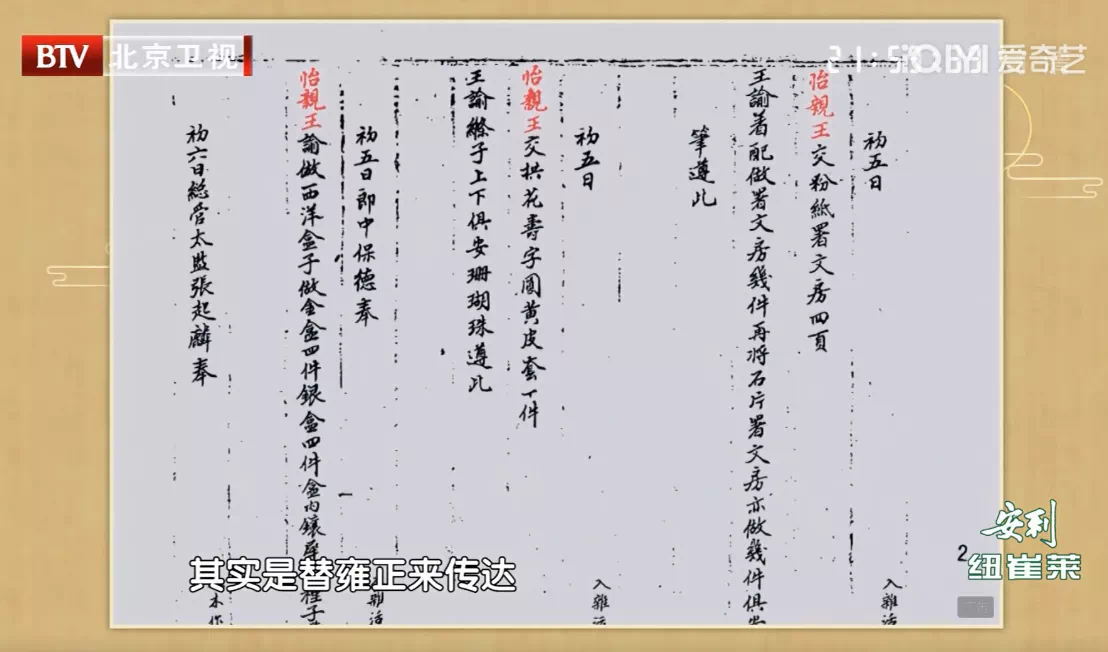 BTV 北京卫视
爱奇艺
初五日
入雜活
怡親王交粉紙署文房四頁
王諭着配做署文房幾件再將石片署文房亦做幾件俱
筆遵此
初五日
入雜活
怡親王交拱花壽字圓黃皮套一件
王諭縧子上下俱安珊瑚珠遵此
初五日郎中保德奉
雜活
怡親王諭做西洋盒子做金盒四件銀盒四件盒內鑲
初六日總管太監張起麟奉
木作
其实是替雍正来传达
安利
纽崔莱
2